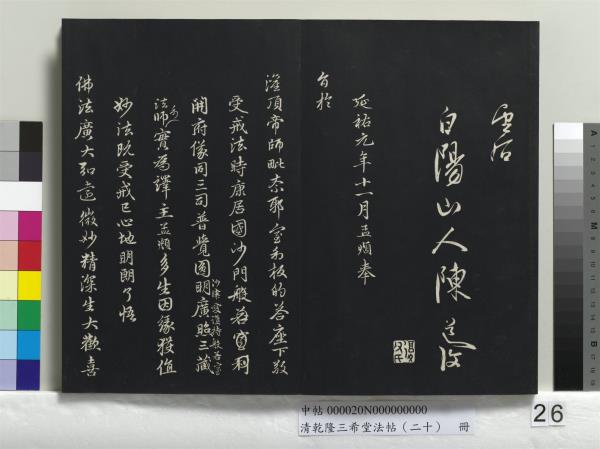 白陽山人陳道復
延祐元年十一月孟頫奉
灌頂帝師毗奈耶室利板的荅座下敬
受戒法時康居國沙門般若室利
開府儀同三司普覺圓明廣照三藏
法師實為譯主孟頫多生因緣獲值
妙法既受戒已心地明朗了悟
佛法廣大弘遠微妙精深生大歡喜
中帖 000020N000000000
清乾隆三希堂法帖（二十） 冊
26